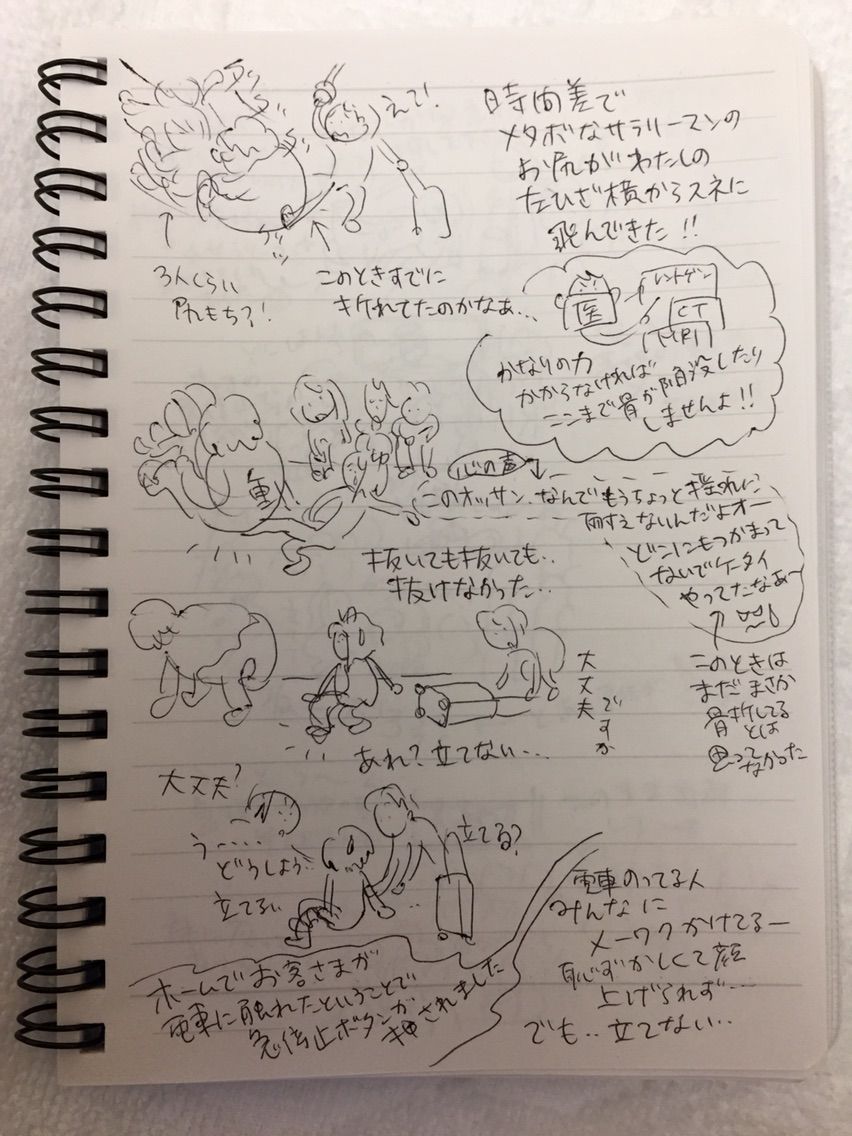 えて!
時間差で
メタボなサラリーマンの
お尻がわたしの
左ひざ横からスネに
飛んできた!!
3人くらい
尻もち?!
このときすでに
折れてたのかなぁ…
医
レントゲン
CT
MRI
かなりの力
かからなければ
ここまで骨が陥没したり
しませんよ!!
重!
心の声
このオッサン、なんでもうちょっと揺れに
耐えないんだよオー
どこにもつかまって
ないでケータイ
やってたなぁー
抜いても抜いても..
抜けなかった..
大丈夫ですか
このときは
まだまさか
骨折してる
とは
思って
なかった
あれ?立てない…
大丈夫?
う‥‥
どうしよう
立てない
立てる?
電車のってる人
みんなに
メーワクかけてるー
恥ずかしくて顔
上げられず…
でも‥立てない‥
ホームでお客さまが
電車に触れたということで
急停止ボタンが押されました